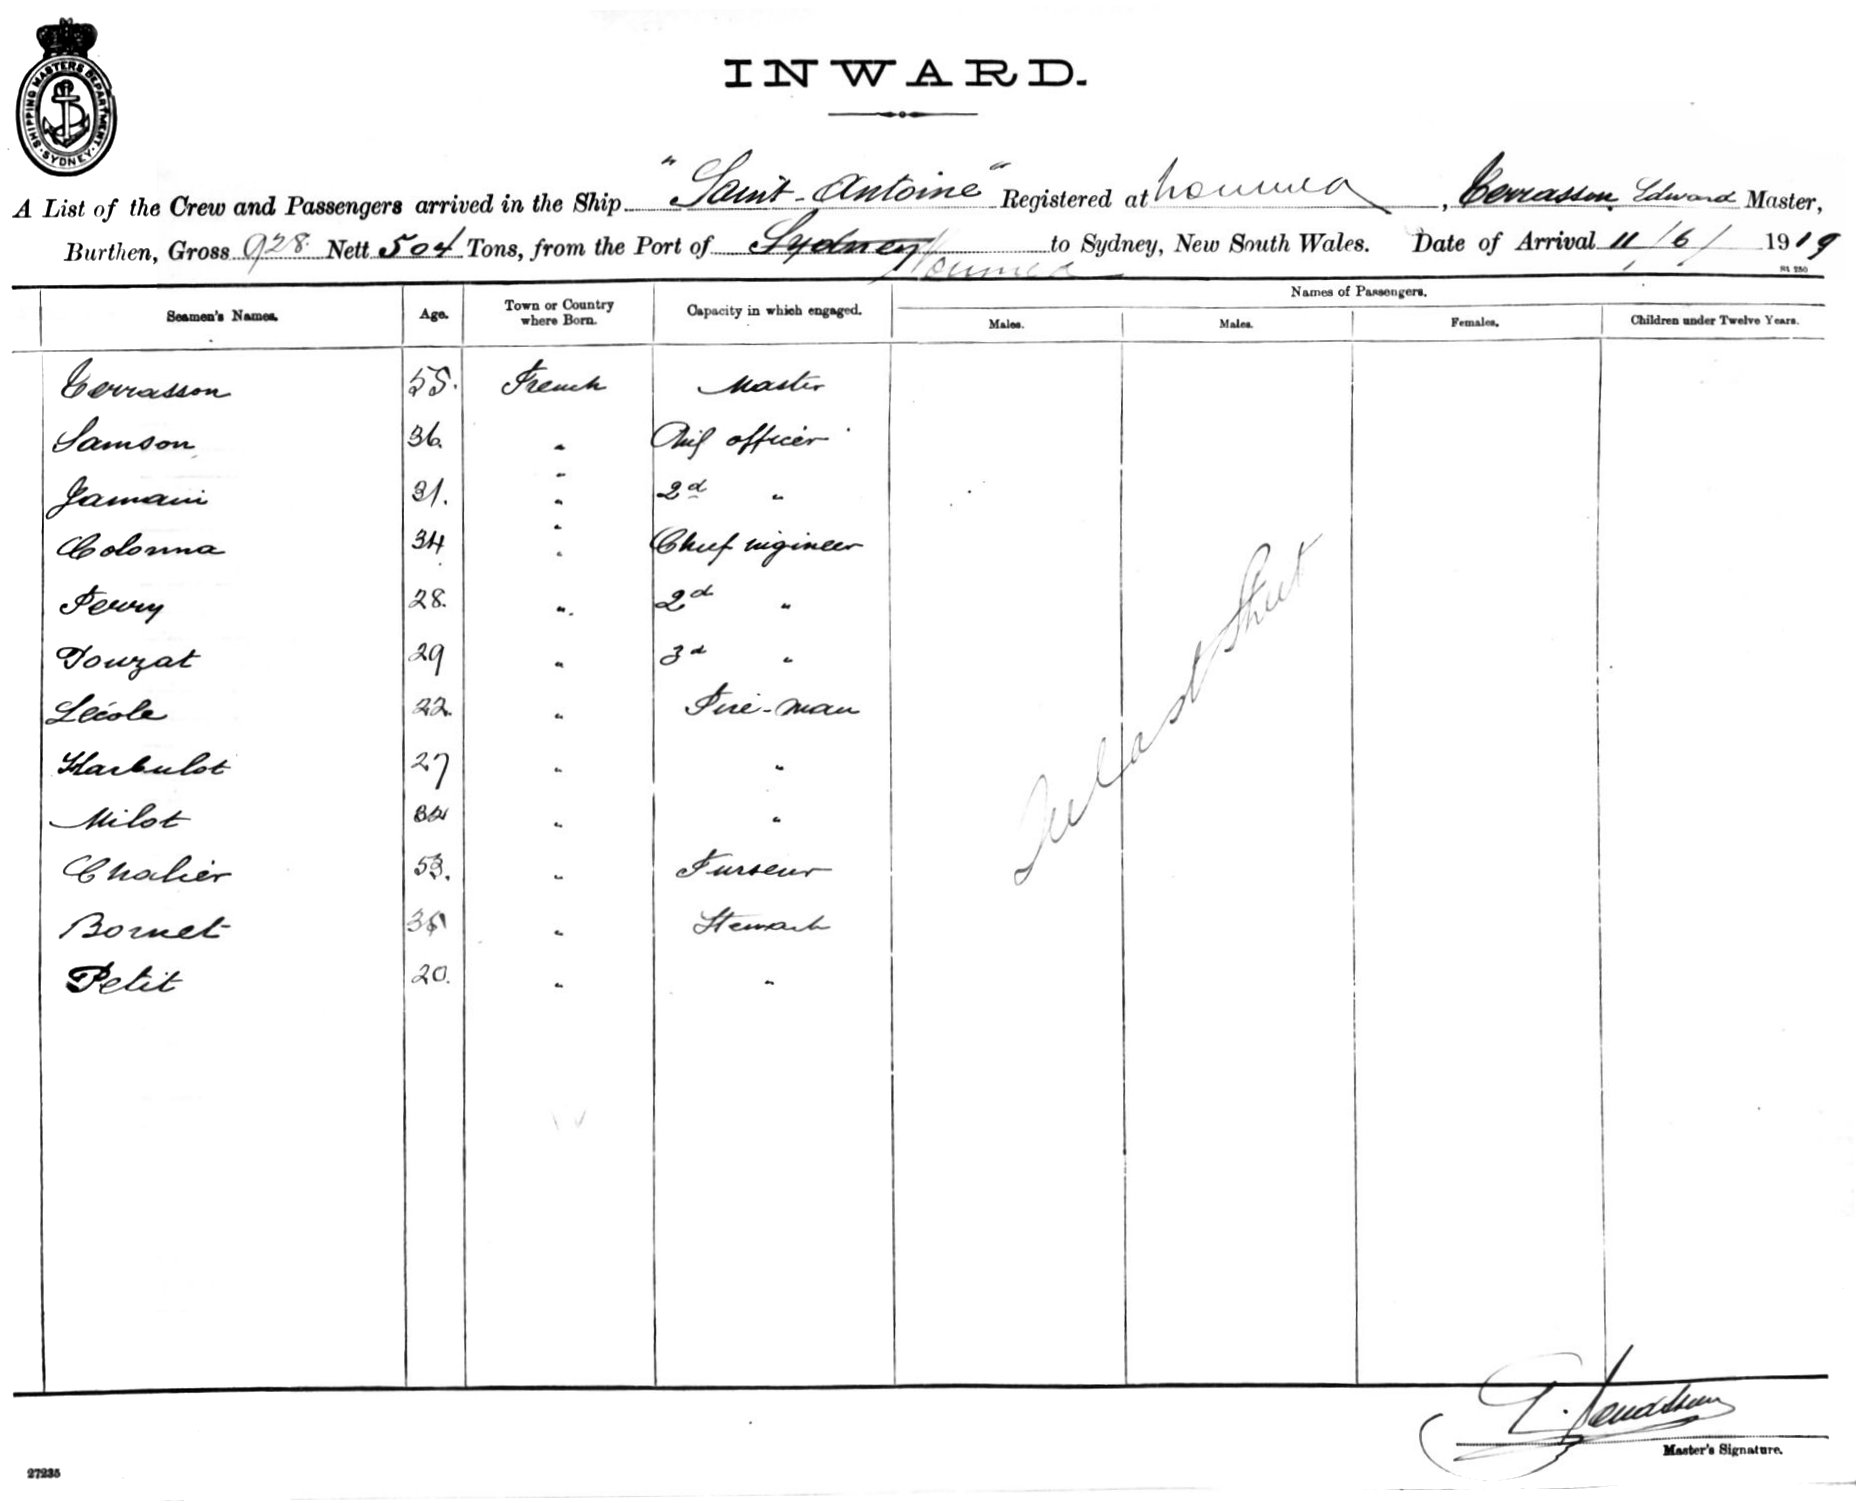 SHIPPING MASTERS DEPARTMENT. SYDNEY
INWARD.
A List of the Crew and Passengers arrived in the Ship "Saint-Antoine" Registered at Noumea, Terrasson Edward Master,
Burthen, Gross 928 Nett 504 Tons, from the Port of Sydney Noumea to Sydney, New South Wales. Date of Arrival 11/6/1919
Seamen's Names. Age. Town or Country where Born. Capacity in which engaged. Names of Passengers.
Males. Males. Females. Children under Twelve Years.
Terrasson 55. French Master
Samson 36. " Chif officer
Jamain 31. " 2d "
Colonna 34 " Chief engineer
Ferry 28. " 2d "
Touzat 29 " 3d "
Lécole 22. " Fire-man
Harbulot 27 " "
Milot "  "
Chalier 53. " Purseur
Bornet 35 " Steward
Petit 20. " "
Sheet
Master's Signature.
27235